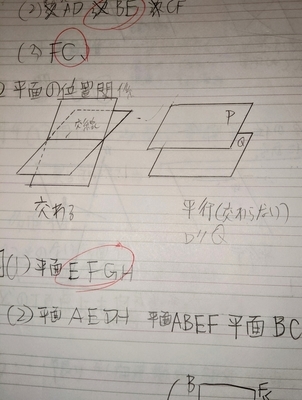 (2) AD BE CF
(3) FC
② 平面の位置関係
交線
P
Q
交わる
平行(交わらない)
P // Q
(1) 平面EFGH
(2) 平面AEDH 平面ABEF 平面BC
B F